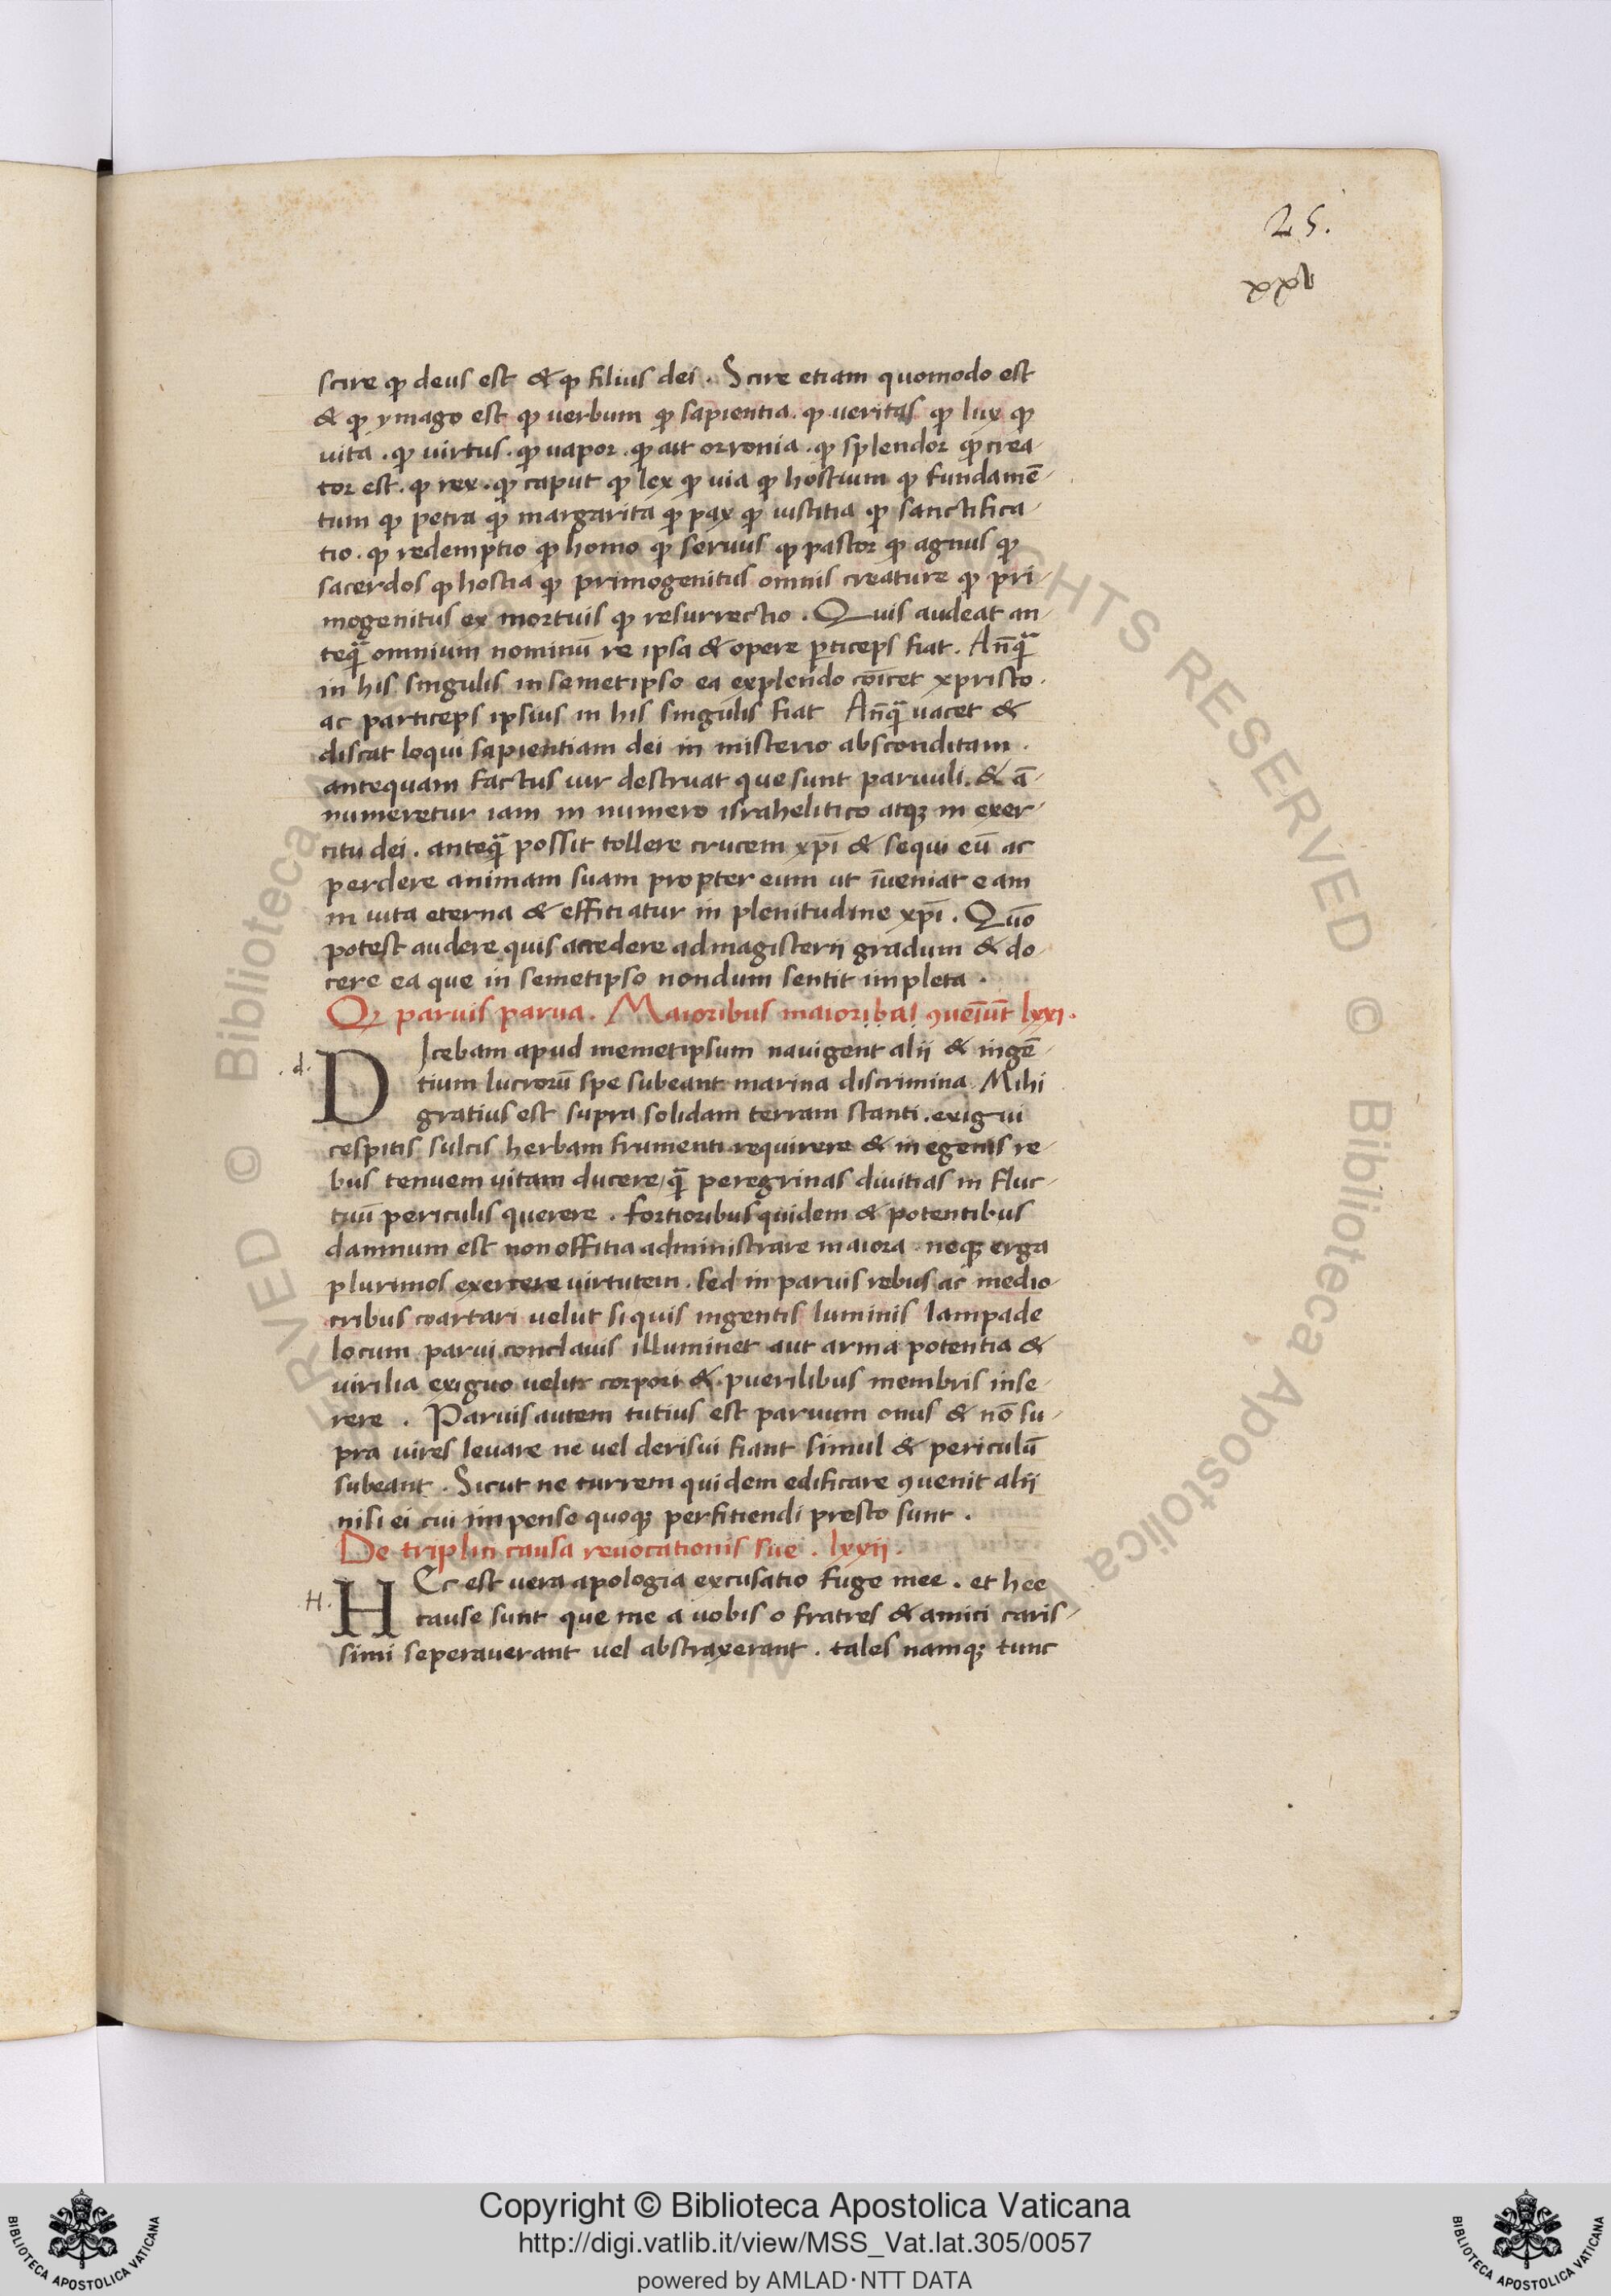 25.
xxv
scire ꝙ deus est & ꝙ filius dei . Scire etiam quomodo est
& ꝙ ymago est ꝙ verbum ꝙ sapientia . ꝙ veritas ꝙ lux ꝙ
uita . ꝙ uirtus . ꝙ uapor . ꝙ aut orronia . ꝙ splendor ꝙ crea-
tor est . ꝙ rex . ꝙ caput ꝙ lex ꝙ uia ꝙ hostium ꝙ fundamē-
tum ꝙ petra ꝙ margarita ꝙ pax ꝙ iustitia ꝙ sanctifica-
tio . ꝙ redemptio ꝙ homo ꝙ seruus ꝙ pastor ꝙ agnus ꝙ
sacerdos ꝙ hostia ꝙ primogenitus omnis creature ꝙ pri-
mogenitus ex mortuis ꝙ resurrectio . Quis audeat an-
teq̄ omnium nominū re ipsa & opere ꝑticeps fiat . An̄q̄
in his singulis in semetipso ea explendo cōicet xpristo .
ac particeps ipsius in his singulis fiat An̄q̄ uacet &
discat loqui sapientiam dei in misterio absconditam .
antequam factus uir destruat que sunt paruuli . & ā-
numeretur iam in numero israhelitico atqꝫ in exer-
citu dei . anteq̄ possit tollere crucem xp̄i & sequi eū ac
perdere animam suam propter eum ut īueniat eam
in uita eterna & effitiatur in plenitudine xp̄i . Quō
potest audere quis accedere ad magisterii gradum & do-
cere ea que in semetipso nondum sentit impleta .
Ꝙ paruis parua . Maioribus maiora ꝯueīūt lxxi .
. d .
DIcebam apud memetipsum nauigent alii & ingē-
tium lucrorū spe subeant marina discrimina . Mihi
gratius est supra solidam terram stanti . exigui
cespitis sulcis herbam frumenti requirere & in egenis re-
bus tenuem uitam ducere / q̄ peregrinas diuitias in fluc-
tuū periculis querere . fortioribus quidem & potentibus
damnum est non offitia administrare maiora . neqꝫ erga
plurimos exercere uirtutem . sed in paruis rebus ac medio-
cribus coartari uelut si quis ingentis luminis lampade
locum parui conclauis illuminet aut arma potentia &
uirilia exiguo uelit corpori & puerilibus membris inse-
rere . Paruis autem tutius est paruum onus & nō su-
pra uires leuare ne uel derisui fiant simul & periculū
subeant . Sicut ne turrem quidem edificare ꝯuenit alii
nisi ei cui impense quoqꝫ perfitiendi presto sunt .
De triplici causa reuocationis sue . lxxii .
H .
HEc est uera apologia excusatio fuge mee . et hee
cause sunt que me a uobis o fratres & amici caris-
simi seperauerant uel abstraxerant . tales namqꝫ tunc
Copyright © Biblioteca Apostolica Vaticana
http://digi.vatlib.it/view/MSS_Vat.lat.305/0057
powered by AMLAD·NTT DATA